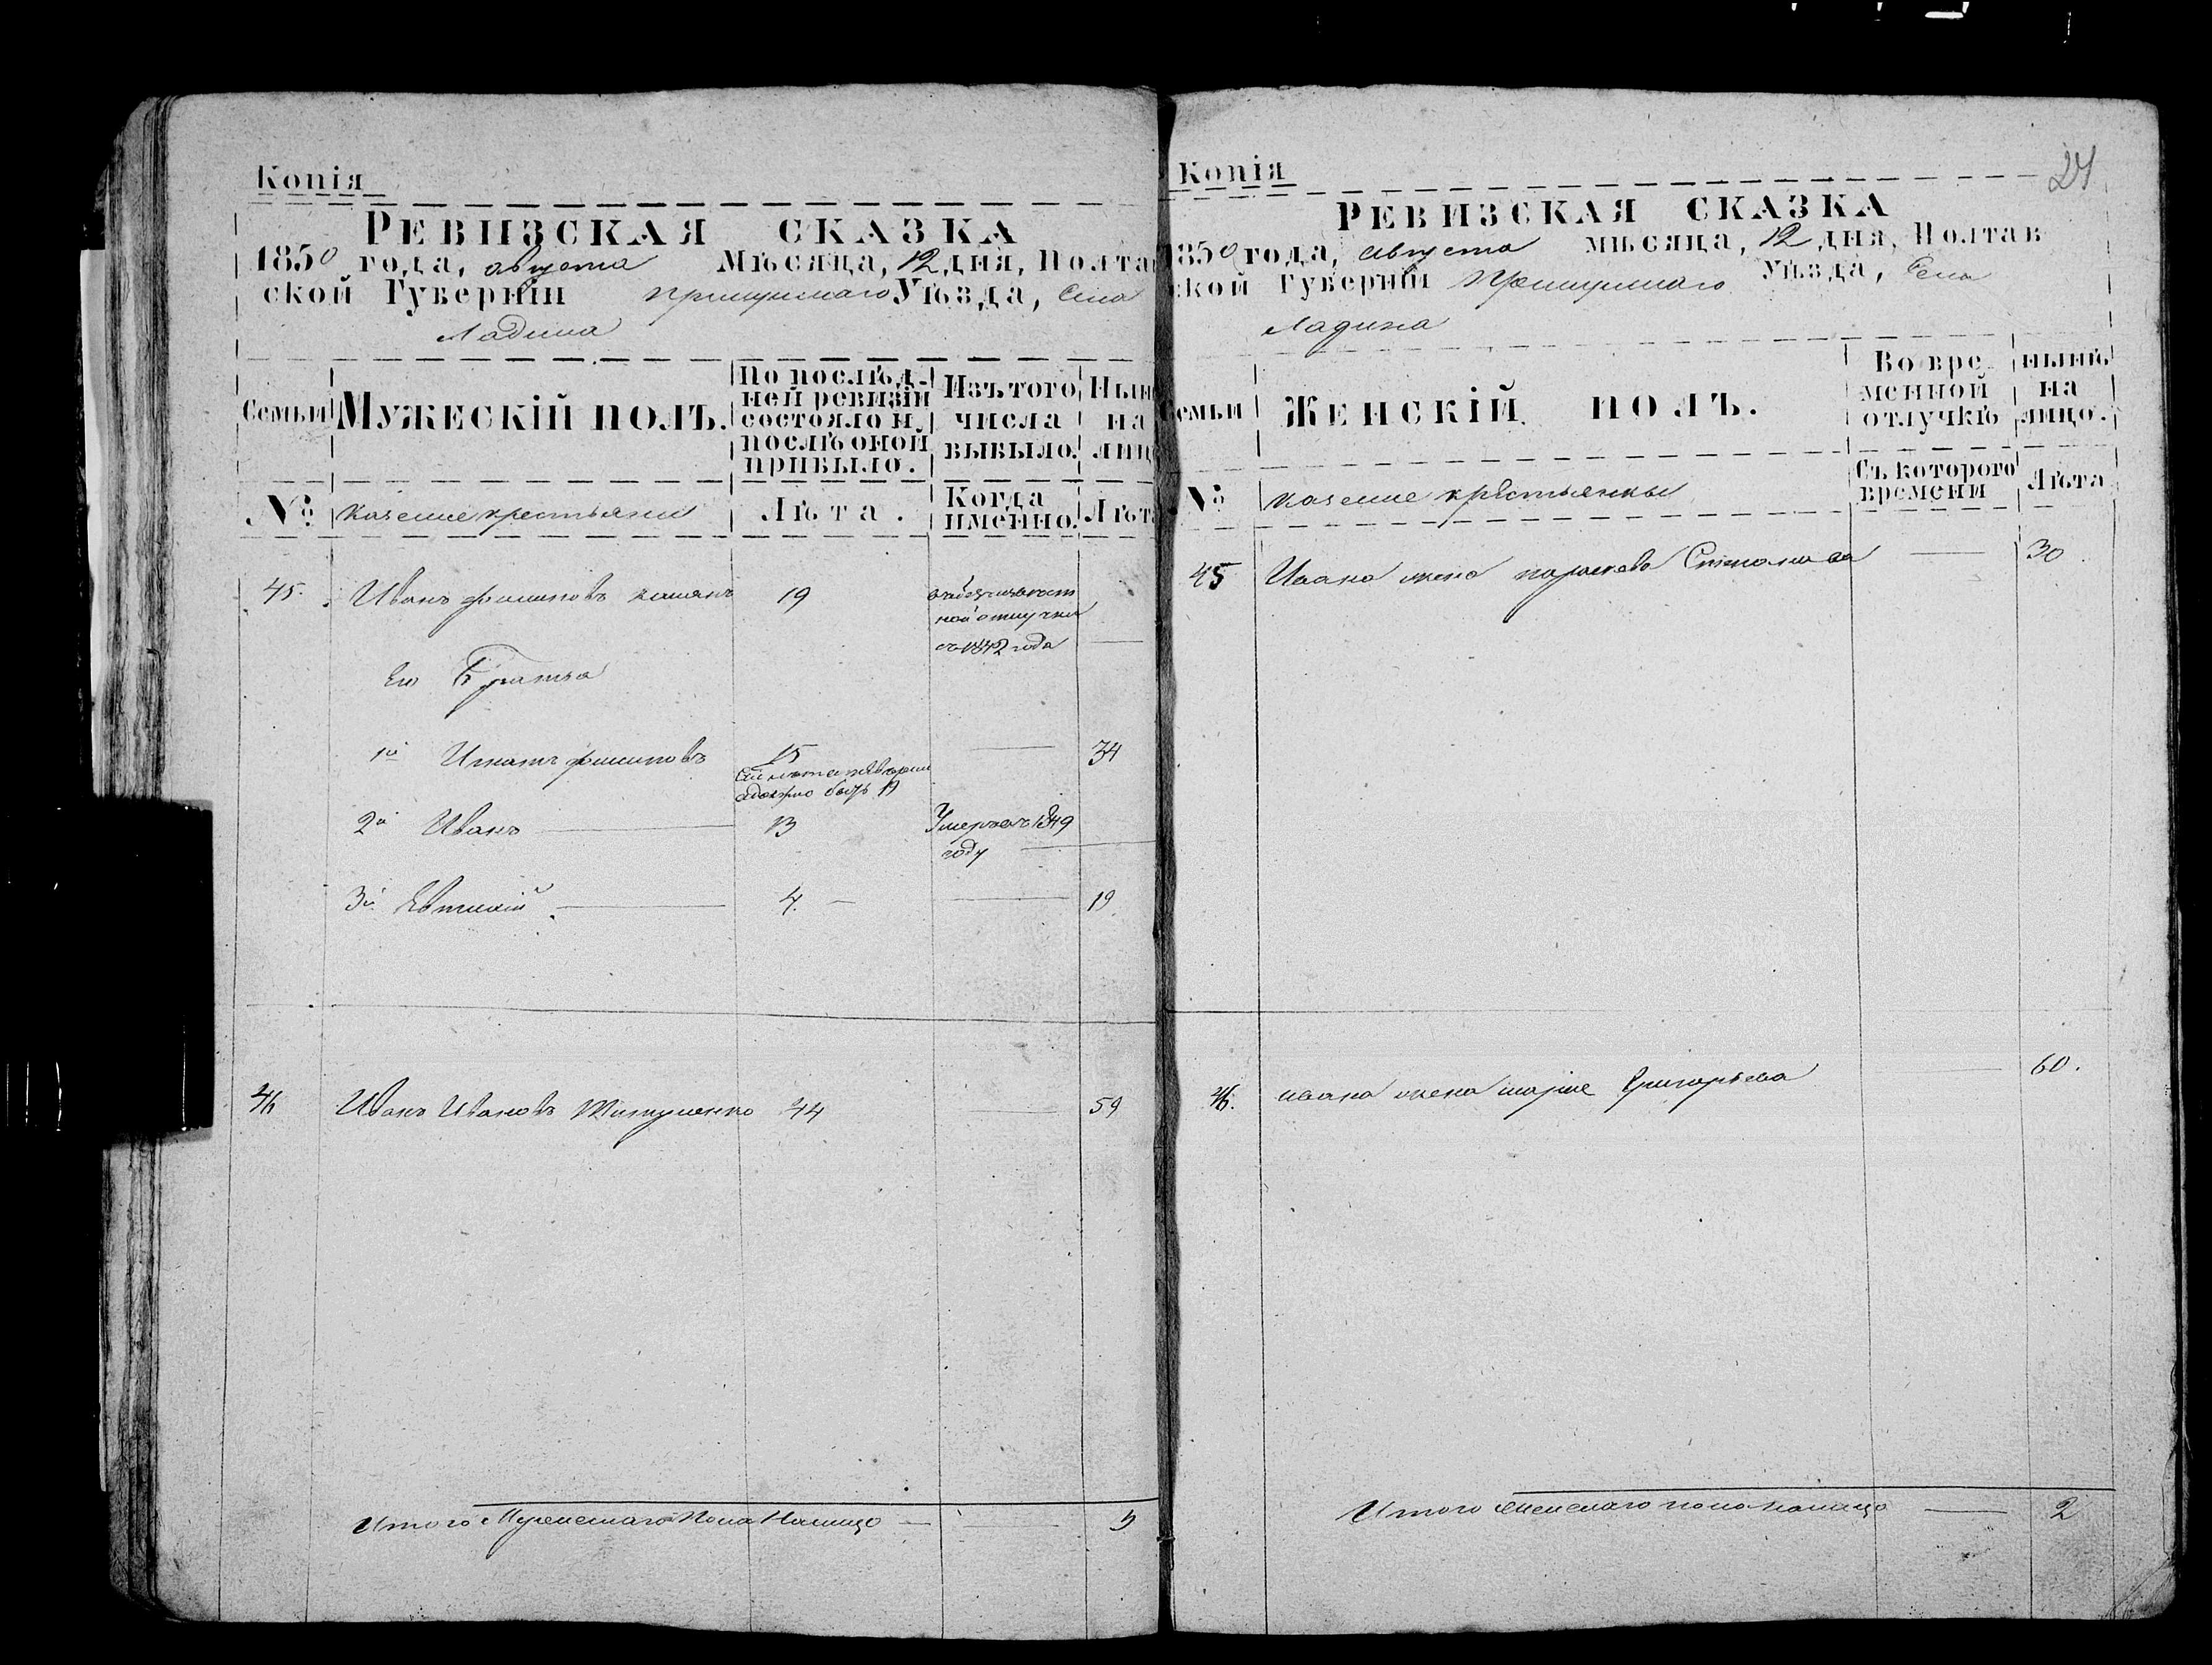 Копія
РЕВИЗСКАЯ СКАЗКА
1850 года, августа Мѣсяца, 12 дня, Полта
ской Губерніи Прилуцкаго Уѣзда, Села
Ладина
Семьи
МУЖЕСКІЙ ПОЛЪ.
По послѣд-
ней ревизіи
состояло и
послѣ оной
прибыло.
Изъ того
числа
выбыло.
Нын
на
лиц
№
казенные крестьяне
Лѣта.
Когда
именно.
Лѣт
45. Иванъ 19
отлучки
съ 1842 года
Его Братья
1й 15 34
должно быть 19
2й Иванъ 13 Умеръ въ 1849
году
3й 4. 19
46 Иванъ Ивановъ 44 59
Итого Мужескаго Пола Налицо
Копія
24
РЕВИЗСКАЯ СКАЗКА
1850 года, августа мѣсяца, 12 дня, Полтав
ской Губерніи Прилуцкаго Уѣзда, Села
Ладина
Семьи
ЖЕНСКІЙ ПОЛЪ.
Во вре
менной
отлучкѣ
нынѣ
на
лицо.
№
казенные крестьянки
Съ котораго
времени
Лѣта
45 Ивана жена Параскева Степанова 30
46. Ивана жена Марія Григорьева 60.
Итого женскаго пола налицо 2